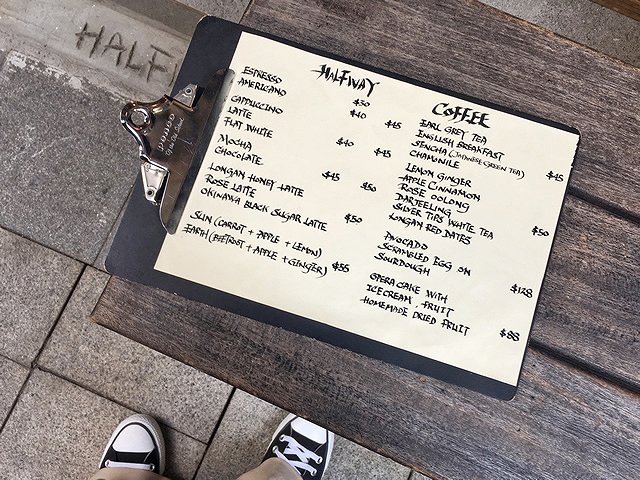 HALF
HALFWAY COFFEE
ESPRESSO $30
AMERICANO $40
CAPPUCCINO $45
LATTE
FLAT WHITE $40
MOCHA $45
CHOCOLATE $45
LONGAN HONEY LATTE $50
ROSE LATTE
OKINAWA BLACK SUGAR LATTE $50
SUN (CARROT + APPLE + LEMON)
EARTH (BEETROOT + APPLE + GINGER) $55
EARL GREY TEA
ENGLISH BREAKFAST
SENCHA (JAPANESE GREEN TEA)
CHAMOMILE $45
LEMON GINGER
APPLE CINNAMON
ROSE OOLONG
DARJEELING
SILVER TIPS WHITE TEA
LONGAN RED DATES $50
AVOCADO
SCRAMBLED EGG ON
SOURDOUGH $128
OPERA CAKE WITH
ICE CREAM, FRUIT
HOMEMADE DRIED FRUIT $88